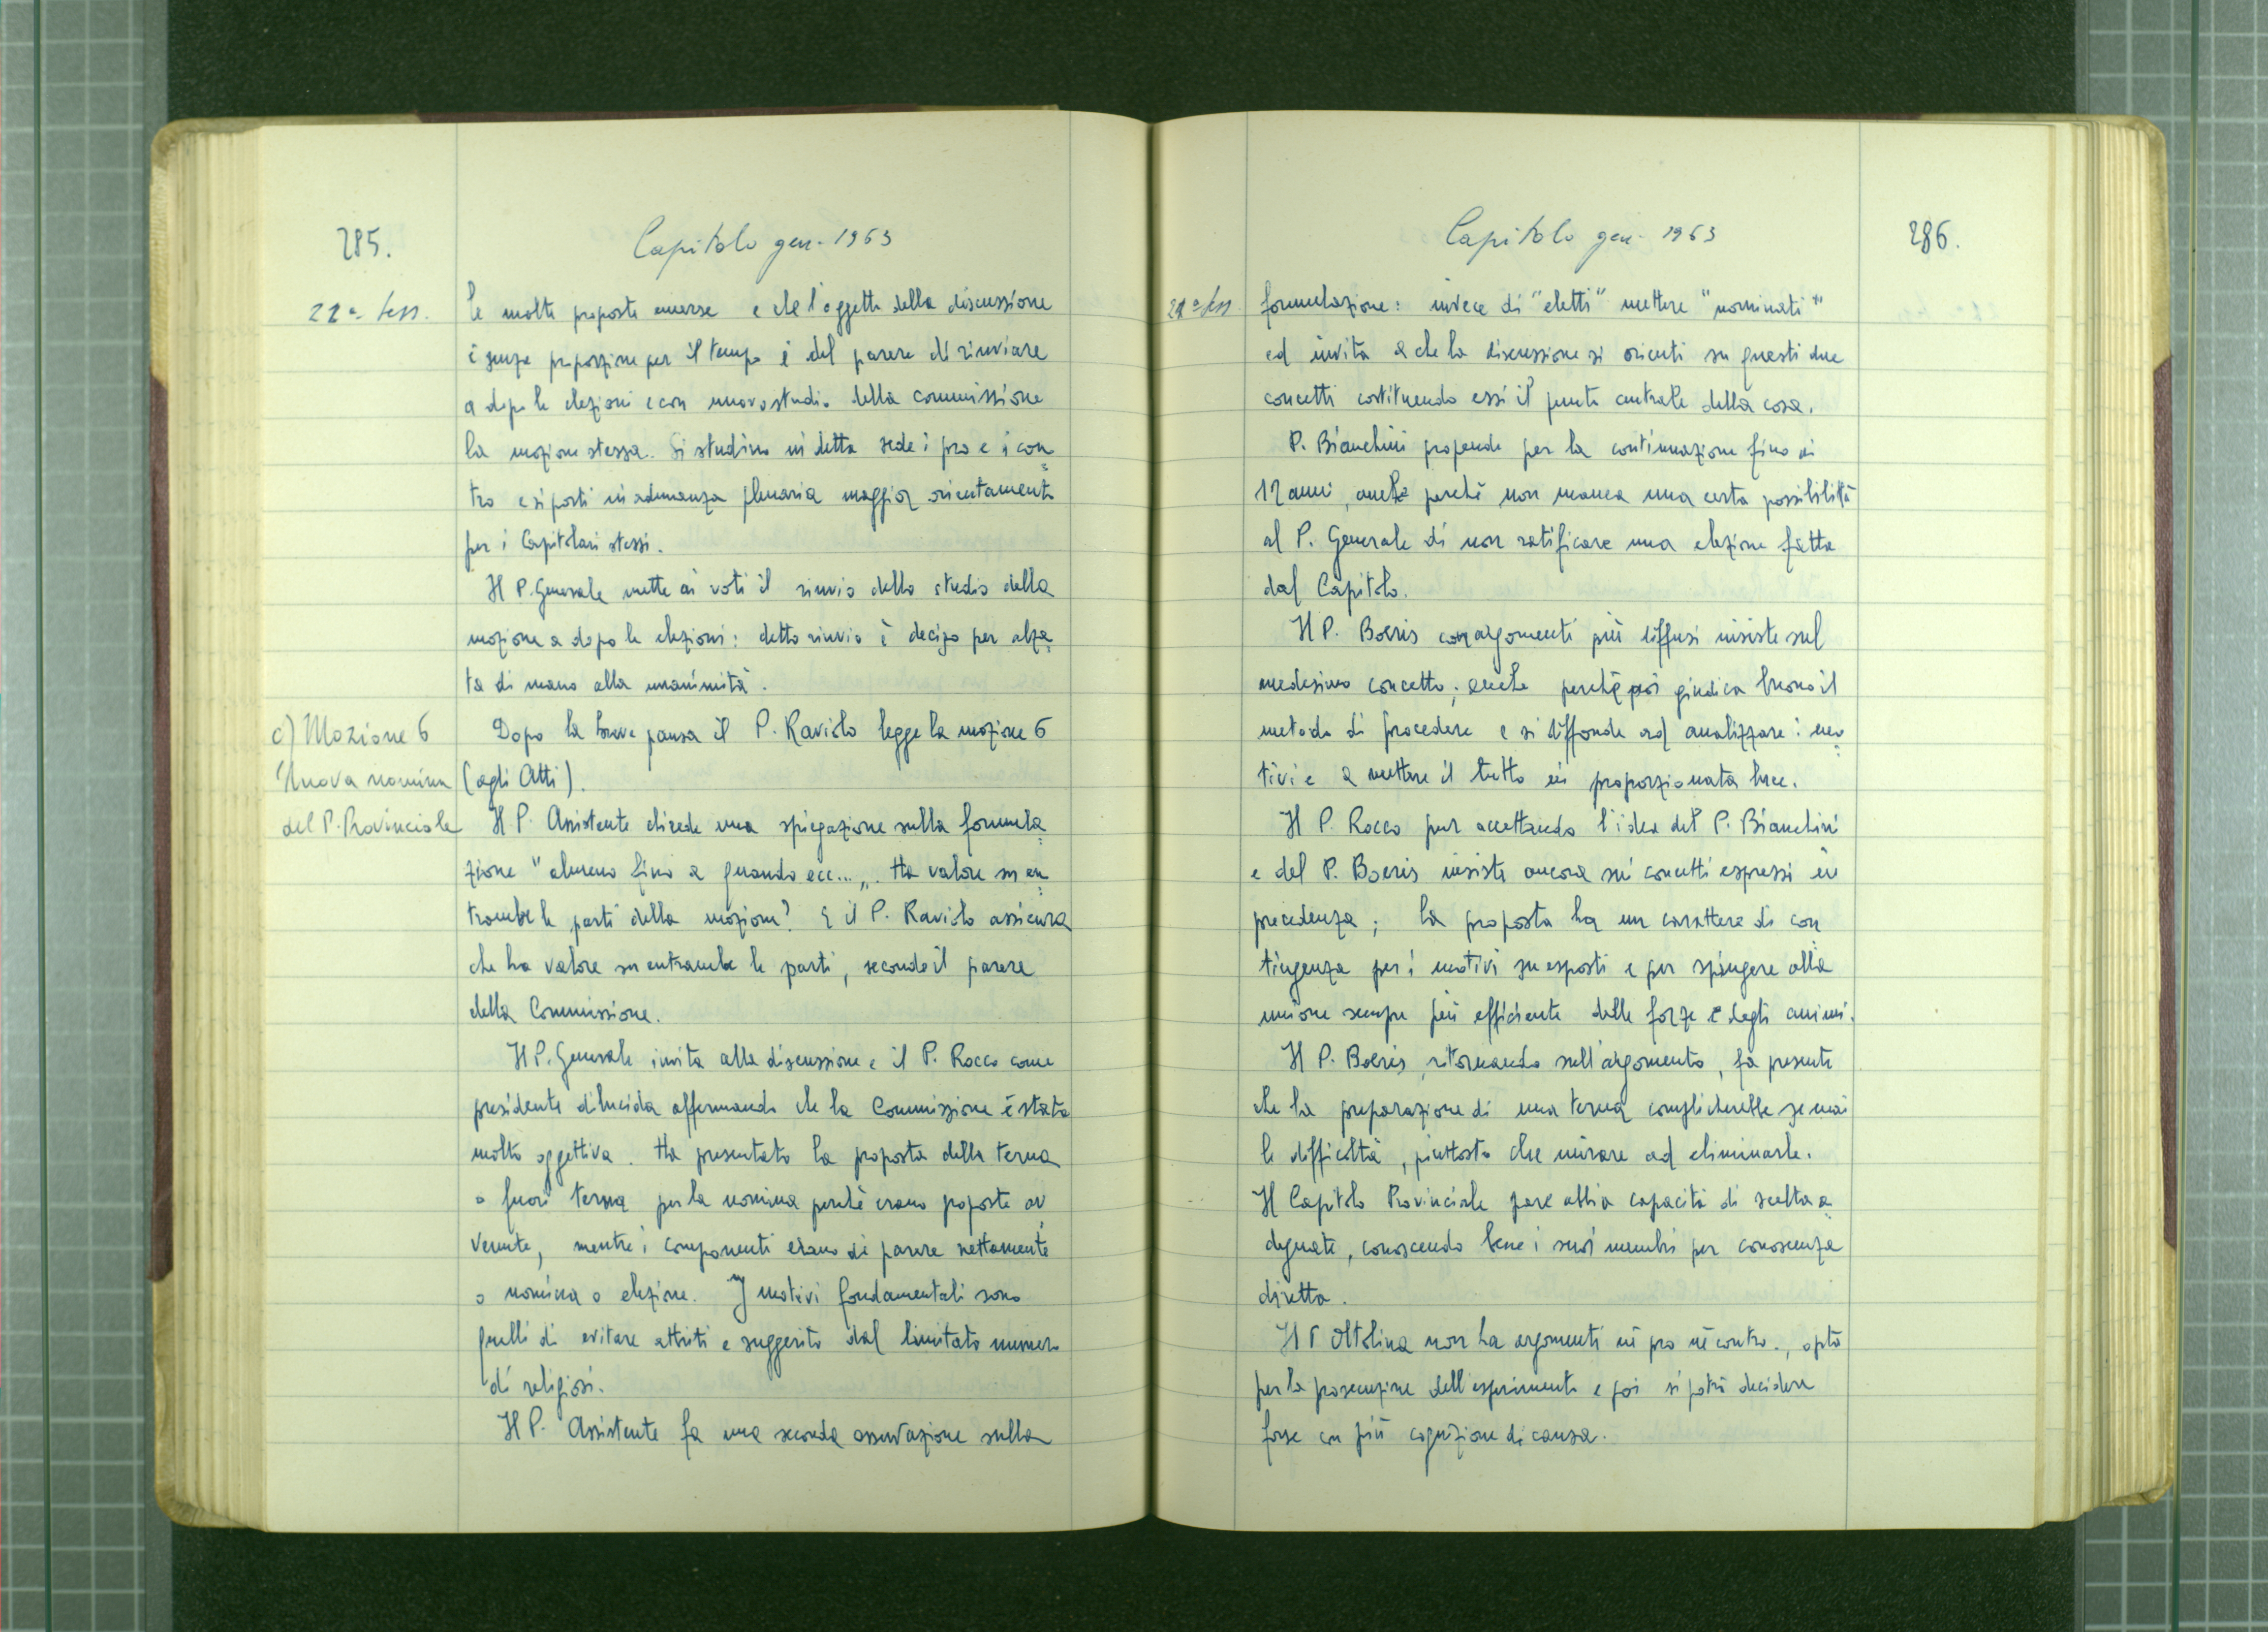 285.
Capitolo gen. 1963
22ª Sess.
le molte proposte emerse e che l'oggetto della discussione
è senza proporzione per il tempo è del parere di rinviare
a dopo le elezioni e con nuovo studio della commissione
la mozione stessa. Si studino in detta sede i pro e i con=
tro e si porti in adunanza plenaria maggior orientamento
per i Capitolari stessi.
Il P. Generale mette ai voti il rinvio dello studio della
mozione a dopo le elezioni: detto rinvio è deciso per alza=
ta di mano alla unanimità.
c) Mozione 6
Nuova nomina
del P. Provinciale
Dopo la breve pausa il P. Raviolo legge la mozione 6
(agli Atti).
Il P. Assistente chiede una spiegazione sulla formula=
zione "almeno fino a quando ecc...„. Ha valore su en=
trambe le parti della mozione? E il P. Raviolo assicura
che ha valore su entrambe le parti, secondo il parere
della Commissione.
Il P. Generale invita alla discussione e il P. Rocco come
presidente dilucida affermando che la Commissione è stata
molto oggettiva. Ha presentato la proposta della terna
o fuori terna per la nomina perchè erano proposte av
venute, mentre i componenti erano di parere nettamente
o nomina o elezione. I motivi fondamentali sono
quelli di evitare attriti e suggerito dal limitato numero
di religiosi.
Il P. Assistente fa una seconda osservazione sulla
Capitolo gen. 1963
286.
22ª Sess
formulazione: invece di "eletti" mettere "nominati"
ed invita a che la discussione si orienti su questi due
concetti costituendo essi il punto centrale della cosa.
P. Bianchini propende per la continuazione fino ai
12 anni, anche perchè non manca una certa possibilità
al P. Generale di non ratificare una elezione fatta
dal Capitolo.
Il P. Boeris con argomenti più diffusi insiste sul
medesimo concetto; anche perchè poi giudica buono il
metodo di procedere e si diffonde ad analizzare i mo=
tivi e a mettere il tutto in proporzionata luce.
Il P. Rocco pur accettando l'idea del P. Bianchini
e del P. Boeris insiste ancora sui concetti espressi in
precedenza; la proposta ha un carattere di con
tingenza per i motivi su esposti e per spingere alla
unione sempre più efficiente delle forze e degli animi.
Il P. Boeris, ritornando sull'argomento, fa presente
che la preparazione di una terna complicherebbe se mai
le difficoltà, piuttosto che mirare ad eliminarle.
Il Capitolo Provinciale pare abbia capacità di scelta a=
deguate, conoscendo bene i suoi membri per conoscenza
diretta.
Il P Oltolina non ha argomenti nè pro nè contro., opta
per la prosecuzione dell'esperimento e poi si potrà decidere
forse con più cognizione di causa.